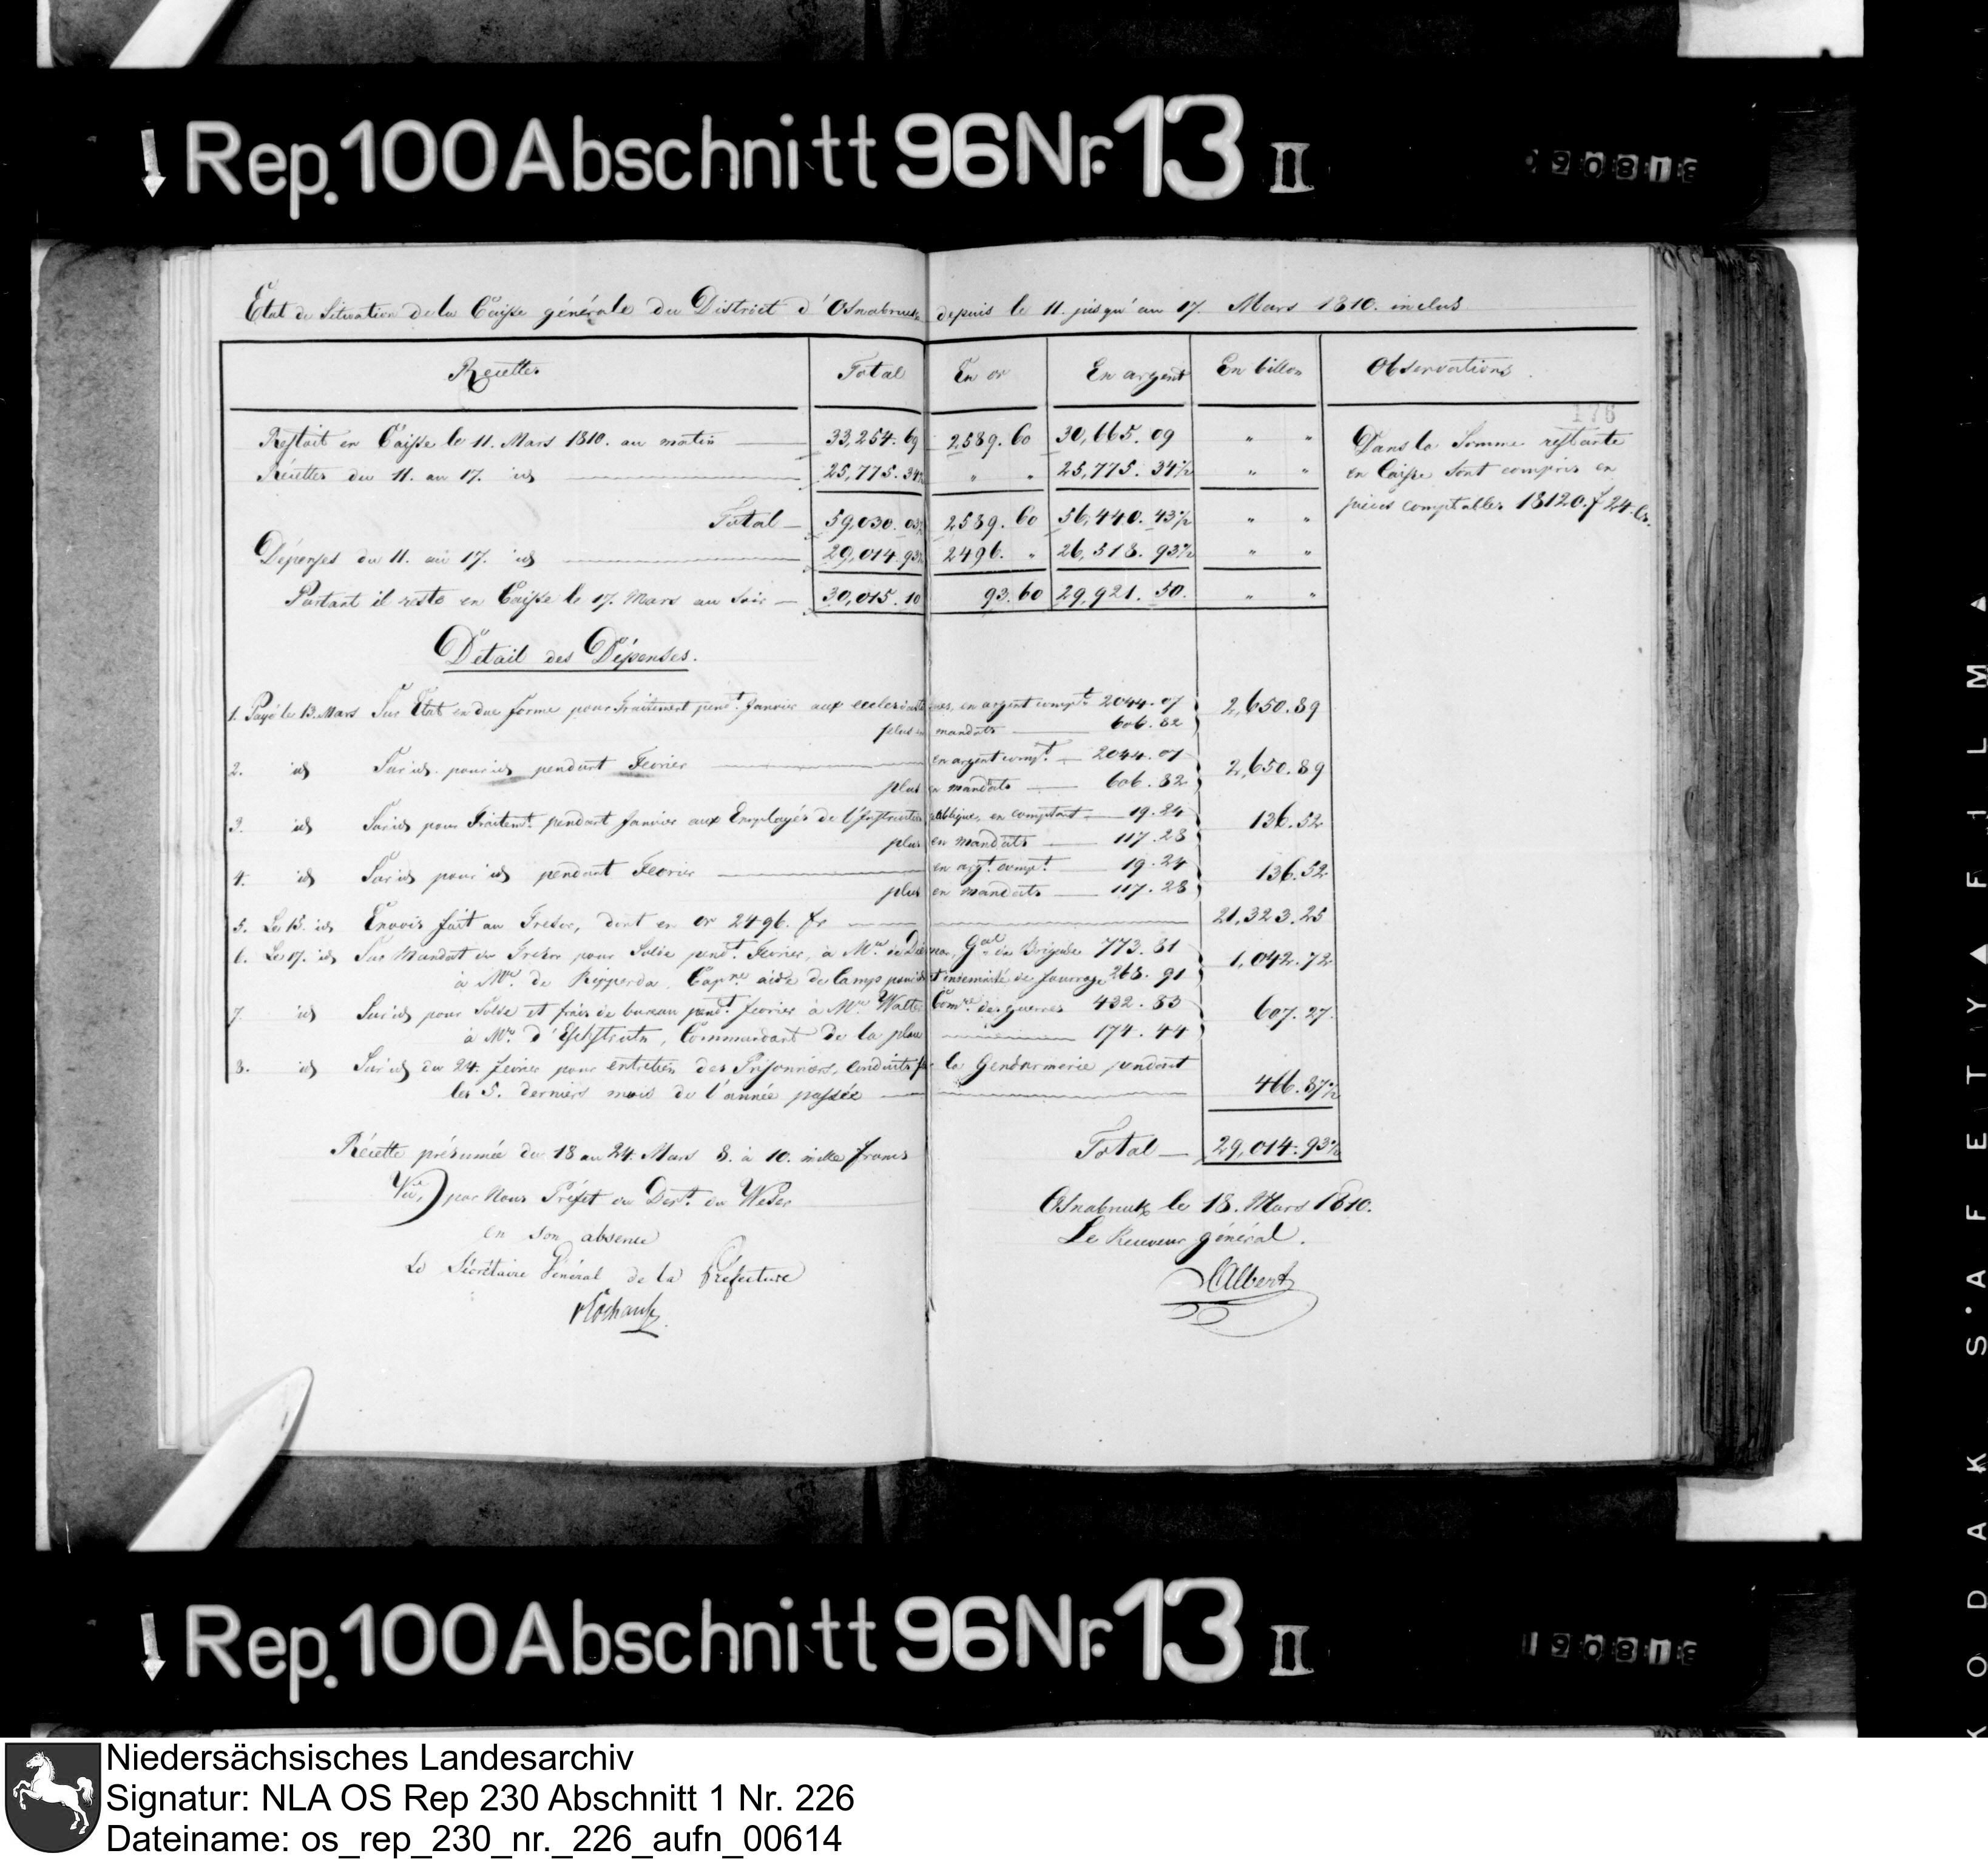 Rep. 100 Abschnitt 96 Nr. 13 II
Etat de Situation de la Caisse générale du District d'Osnabruck depuis le 11. jusqu'au 17. Mars 1810. inclus
Recettes Total En or En argent En billon Observations
178
Restait en Caisse le 11. Mars 1810. au matin 33,254. 69 2589. 60 30,665. 09 " " Dans la Somme restante
Récettes du 11. au 17. id 25,775. 34½ " " 25,775. 34½ " " en Caisse sont compris en
Total 59,030. 03½ 2589. 60 56,440. 43½ " " pièces comptables 18120. f 24. Cs.
Dépenses du 11. au 17. id 29,014. 93½ 2496. " 26,518. 93½ " "
Partant il reste en Caisse le 17. Mars au Soir 30,015. 10 93. 60 29,921. 50. " "
Détail des Dépenses.
1. Payé le 13. Mars Sur Etat en due forme pour Traitement pend.t Janvier aux ecclesiastiques, en argent compt.t 2044. 07 2,650. 89
plus en mandats 606. 82
2. id Sur id. pour id pendant Fevrier en argent comp.t 2044. 07 2,650. 89
plus en mandats 606. 82
3. id Sur id pour Traitem.t pendant Janvier aux Employés de l'Instruction publique, en comptant 19. 24 136. 52
plus en mandats 117. 28
4. id Sur id pour id pendant Fevrier en arg.t comp.t 19. 24 136. 52
plus en mandats 117. 28
5. Le 15. id Envois fait au Tresor, dont en or 2496. fr 21,323. 25
6. Le 17. id Sur Mandat du Tresor pour Solde pend.t Fevrier, à M.r G.al de Brigade 773. 81 1,042. 72
à M.r de Ripperda, Cap.ne aide de Camps pour id et indemnité de fourrage 268. 91
7. id Sur id pour Solde et frais de bureau pend.t fevrier à M.r Com.re des guerres 432. 83 607. 27.
à M.r d'Eschstruth, Commandant de la place 174. 44
8. id Sur id du 24. fevrier pour entretien des Prisonniers, conduits par la Gendarmerie pendant
les 5. derniers mois de l'année passée 466. 87½
Récette présumée du 18 au 24. Mars 8. à 10. mille francs Total 29,014. 93½
Vu, par Nous Préfet du Dep.t du Weser
en son absence
Le Sécrétaire Général de la Préfecture
Osnabruck le 18. Mars 1810.
Le Receveur général.
Albert
Rep. 100 Abschnitt 96 Nr. 13 II
KODAK SAFETY FILM
Niedersächsisches Landesarchiv
Signatur: NLA OS Rep 230 Abschnitt 1 Nr. 226
Dateiname: os_rep_230_nr._226_aufn_00614